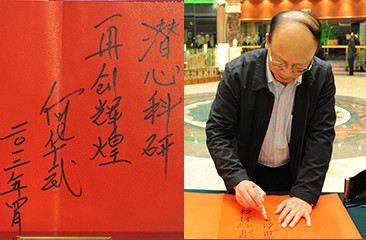 潜心科研
再创辉煌
何华武
二〇一二年四月